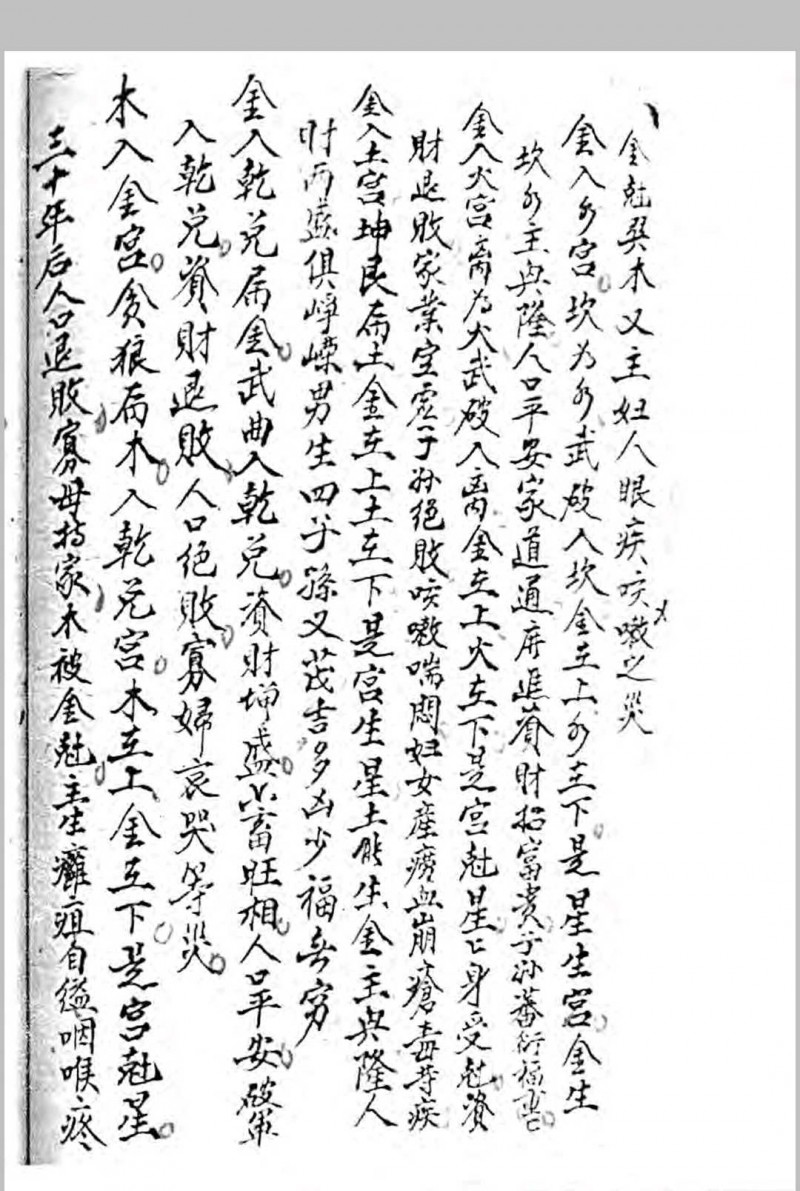 金尅巽木又主妇人眼疾咳嗽之災
金入水宫坎为水武破入坎金在上水在下是星生宫金生
坎水主興隆人口平安家道通府進資財招富贵子孙蕃衍福
金入火宫离为火武破入离金在上火在下是宫尅星匕身受尅资
財退敗家業空虚子孙绝敗咳嗽喘悶妇女産痨血崩瘡毒等疾
金入土宫坤艮属土金在上土在下是宫生星土能生金主興隆人
財両盛俱峥嵘男生四子孫又茂吉多凶少福無穷
金入乾兑属金武曲入乾兑資財増盛六畜旺相人口平安破軍
入乾兑資財退敗人口绝敗寡婦哀哭等災
木入金宫贪狼属木入乾兑宫木在上金在下是宫尅星
三十年后人口退敗寡母持家木被金尅主生癱疽自縊咽喉疼